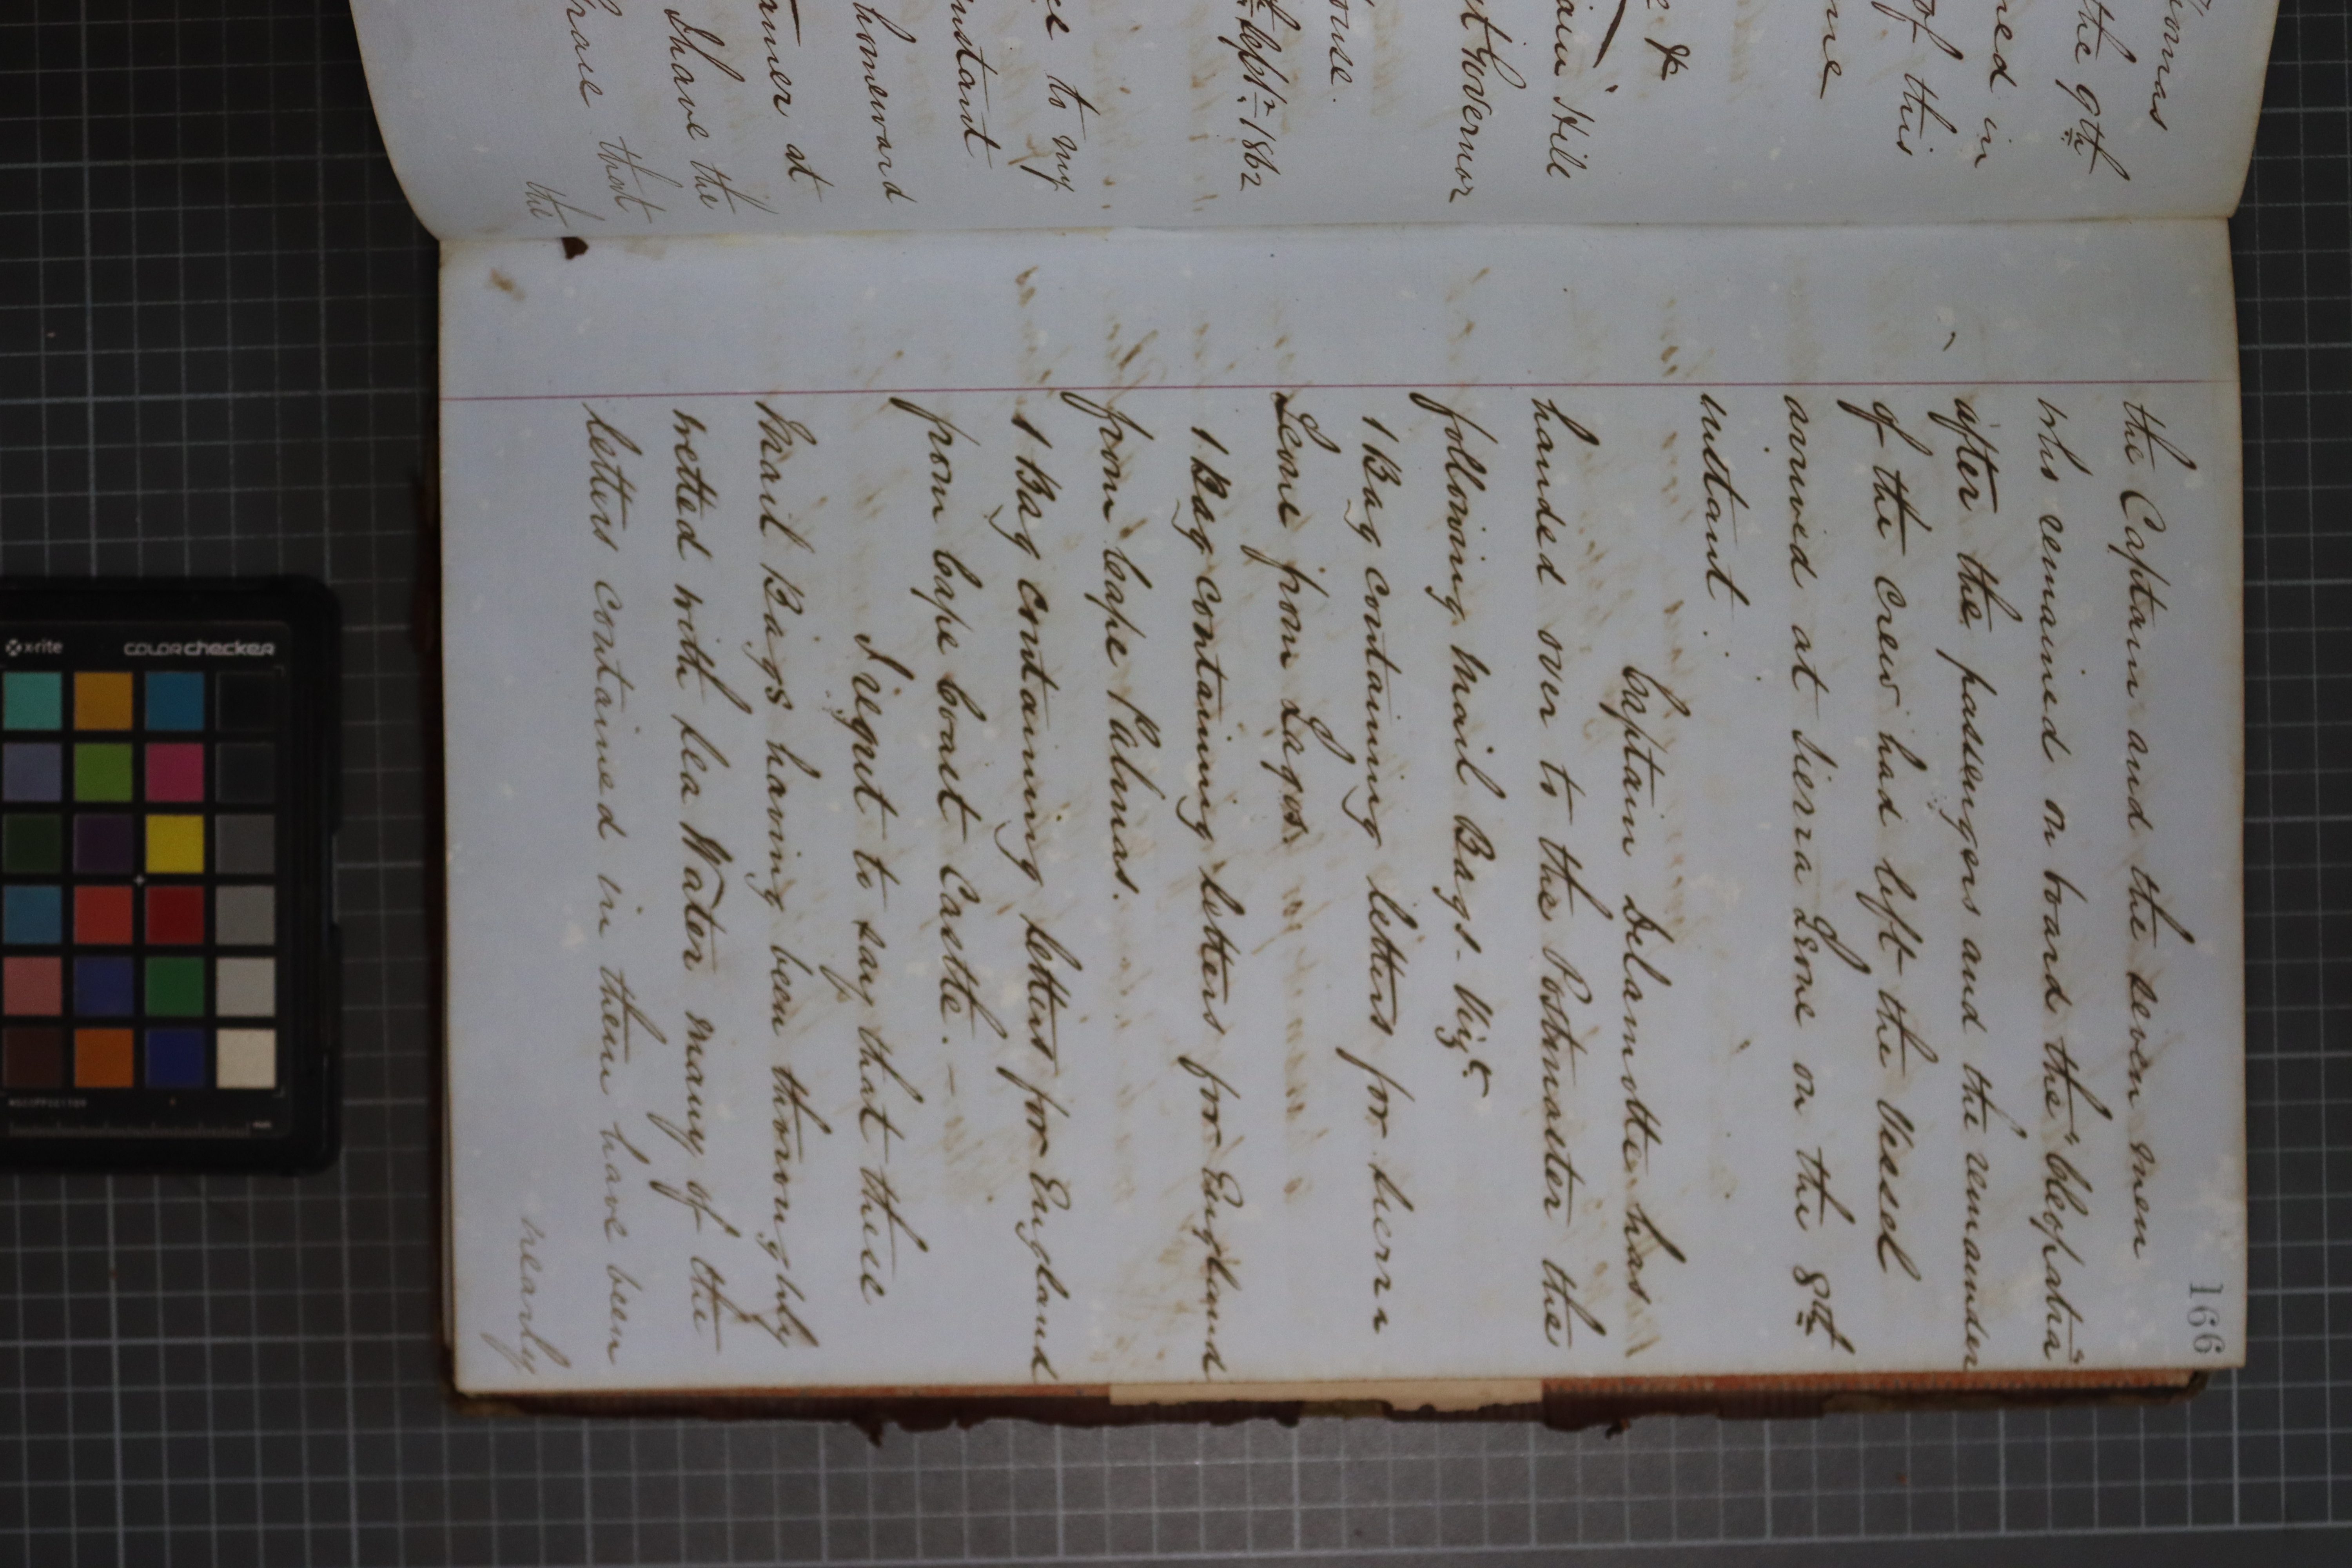 omas
the 9th
ned in
of this
me
e &
ain Hill
t Governor
ouse.
Septr. 1862
ce to my
instant
homeward
amer at
I have the
hrase that
the
166
the Captain and the seven men
who remained on board the "Cleopatra"
after the passengers and the remainder
of the crew had left the Vessel
arrived at Sierra Leone on the 8th
instant.
Captain Delamotte has
handed over to the Postmaster the
following Mail Bags - Vizt
1 Bag containing letters for Sierra
Leone from Lagos.
1 Bag containing letters for England
from Cape Palmas.
1 Bag containing letters for England
from Cape Coast Castle. —
I regret to say that these
Mail Bags having been thoroughly
wetted with Sea Water many of the
letters contained in them have been
nearly